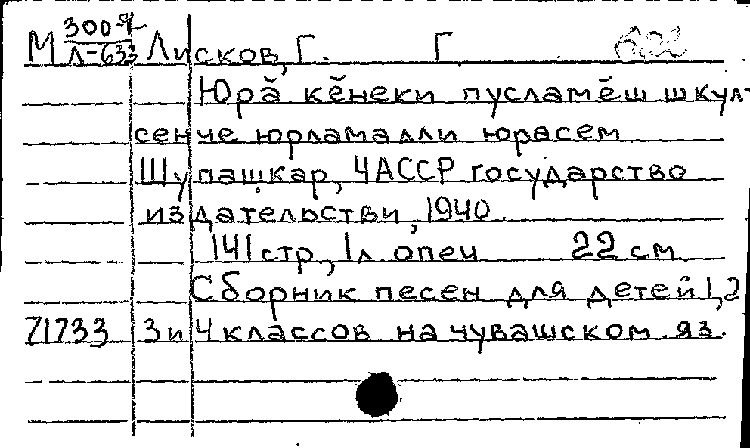 М 300-Я Лисков, Г. Г
Л-633
Юрӑ кӗнеки пусламӗш шкул-
сенче юрламалли юрасем
Шупашкар, ЧАССР государство
издательстви, 1940
141 стр, 1 л опеч 22 см
Сборник песен для детей 1, 2
71733 3 и 4 классов на чувашском яз.